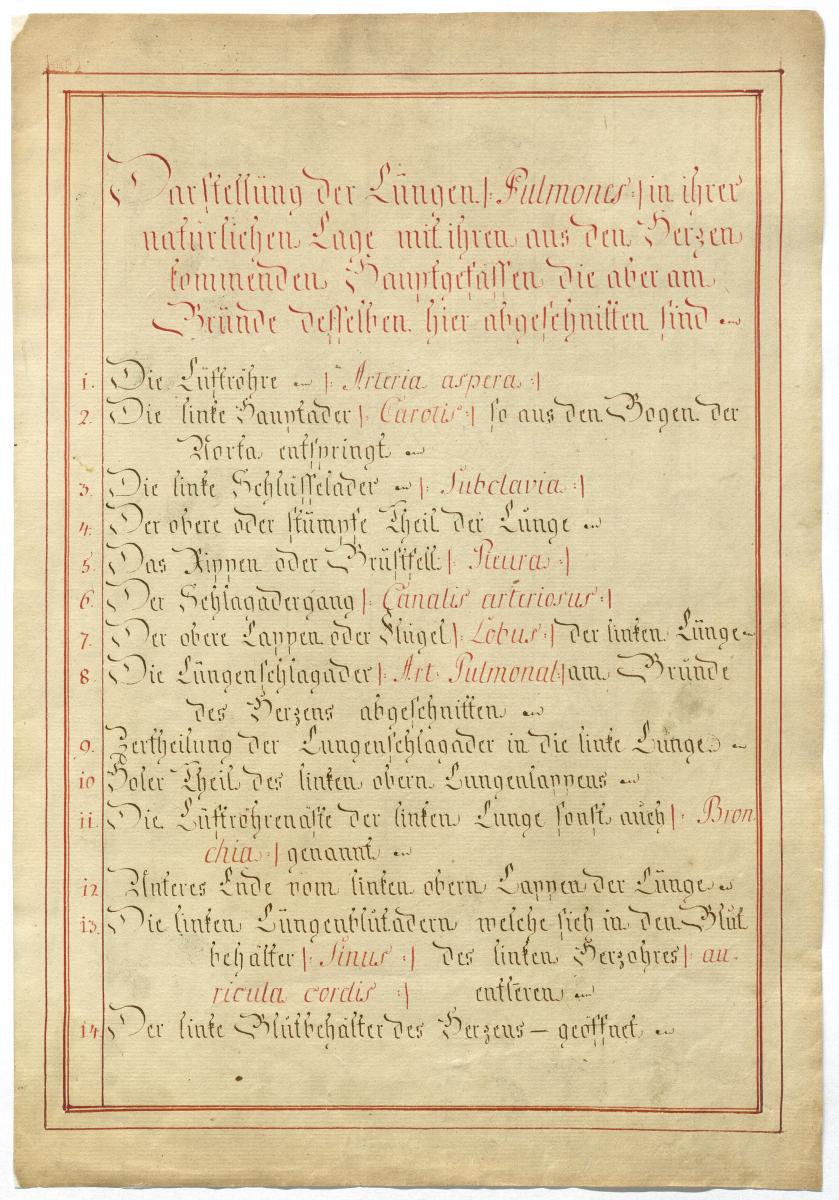 Darstellüng der Lüngen |: Pulmones :| in ihrer
natürlichen Lage mit ihren aus den Herzen
kommenden Hauptgefässen die aber am
Gründe desselben hier abgeschnitten sind
1. Die Lüftröhre |: Arteria aspera :|
2. Die linke Hauptader |: Carotis :| so aus den Bogen der
Aorta entspringt
3. Die linke Schlüsselader |: Subclavia :|
4. Der obere oder stümpfe Theil der Lünge
5. Das Rippen oder Brüstfell |: Pleura :|
6. Der Schlagadergang |: Canalis arteriosus :|
7. Der obere Lappen oder Flügel |: Lobus :| der linken Lünge
8. Die Lüngenschlagader |: Art: Pulmonal :| am Gründe
des Herzens abgeschnitten
9. Zertheilung der Lungenschlagader in die linke Lunge
10 Holer Theil des linken obern Lungenlappens
11. Die Lüftröhrenäste der linken Lunge sonst auch |: Bron
chia :| genannt
12 Unteres Ende vom linken obern Lappen der Lünge
13. Die linken Lüngenblutadern welche sich in den Blüt
behälter |: Sinus :| des linken Herzohres |: au-
ricula cordis :| entleren
14. Der linke Blütbehälter des Herzens — geöffnet